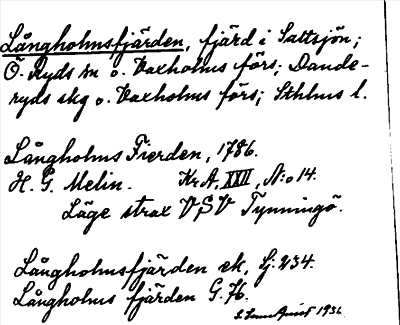 Långholmsfjärden, fjärd i Saltsjön;
Ö. Ryds sn o. Vaxholms förs; Dande-
ryds skg o. Vaxholms förs; Sthlms l.
Långholms Fierden, 1786.
H. G. Melin. Kr.A, XXII, N:o 14.
Läge strax VSV Tynningö.
Långholmsfjärden ek, Sj. 234.
Långholms fjärden G. 76.
1936.